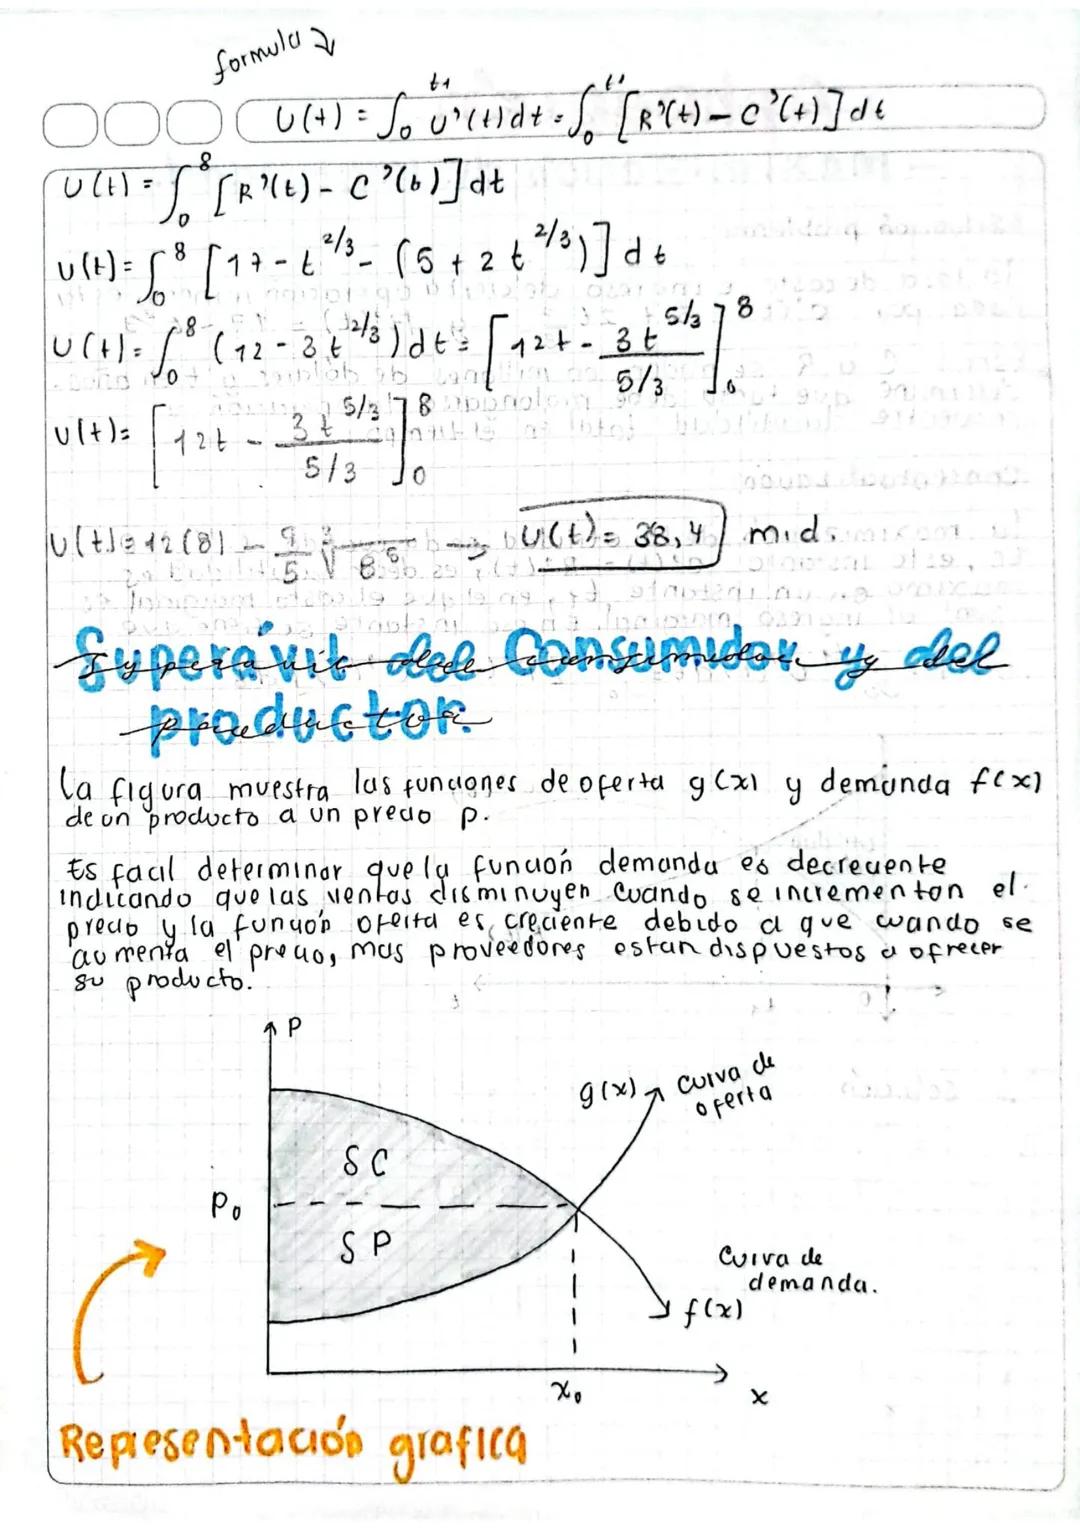 formula
U(t) = ∫₀^t1 U'(t)dt = ∫₀^t1 [R'(t) - C'(t)]dt
U(t) = ∫₀^8 [R'(t) - C'(b)]dt
U(t) = ∫₀^8 [17 - t^2/3 - (5 + 2t^2/3)]dt
U(t) = ∫₀^8 (12 - 3t^2/3)dt = [12t - 3t^5/3 / 5/3]₀^8
U(t) = [12t - 3t^5/3 / 5/3]₀^8
U(t) = 12(8) - 9/5 ³√8⁵ → U(t) = 38,4 m.d.
Superávit del Consumidor y del
productor.
La figura muestra las funciones de oferta g(x) y demanda f(x)
de un producto a un precio p.
Es facil determinar que la función demanda es decreciente
indicando que las ventas disminuyen cuando se incrementan el
precio y la función oferta es creciente debido a que cuando se
aumenta el precio, mas proveedores estan dispuestos a ofrecer
su producto.
P
g(x) curva de
oferta
SC
P₀
SP
Curva de
demanda.
f(x)
x₀
x
Representación grafica